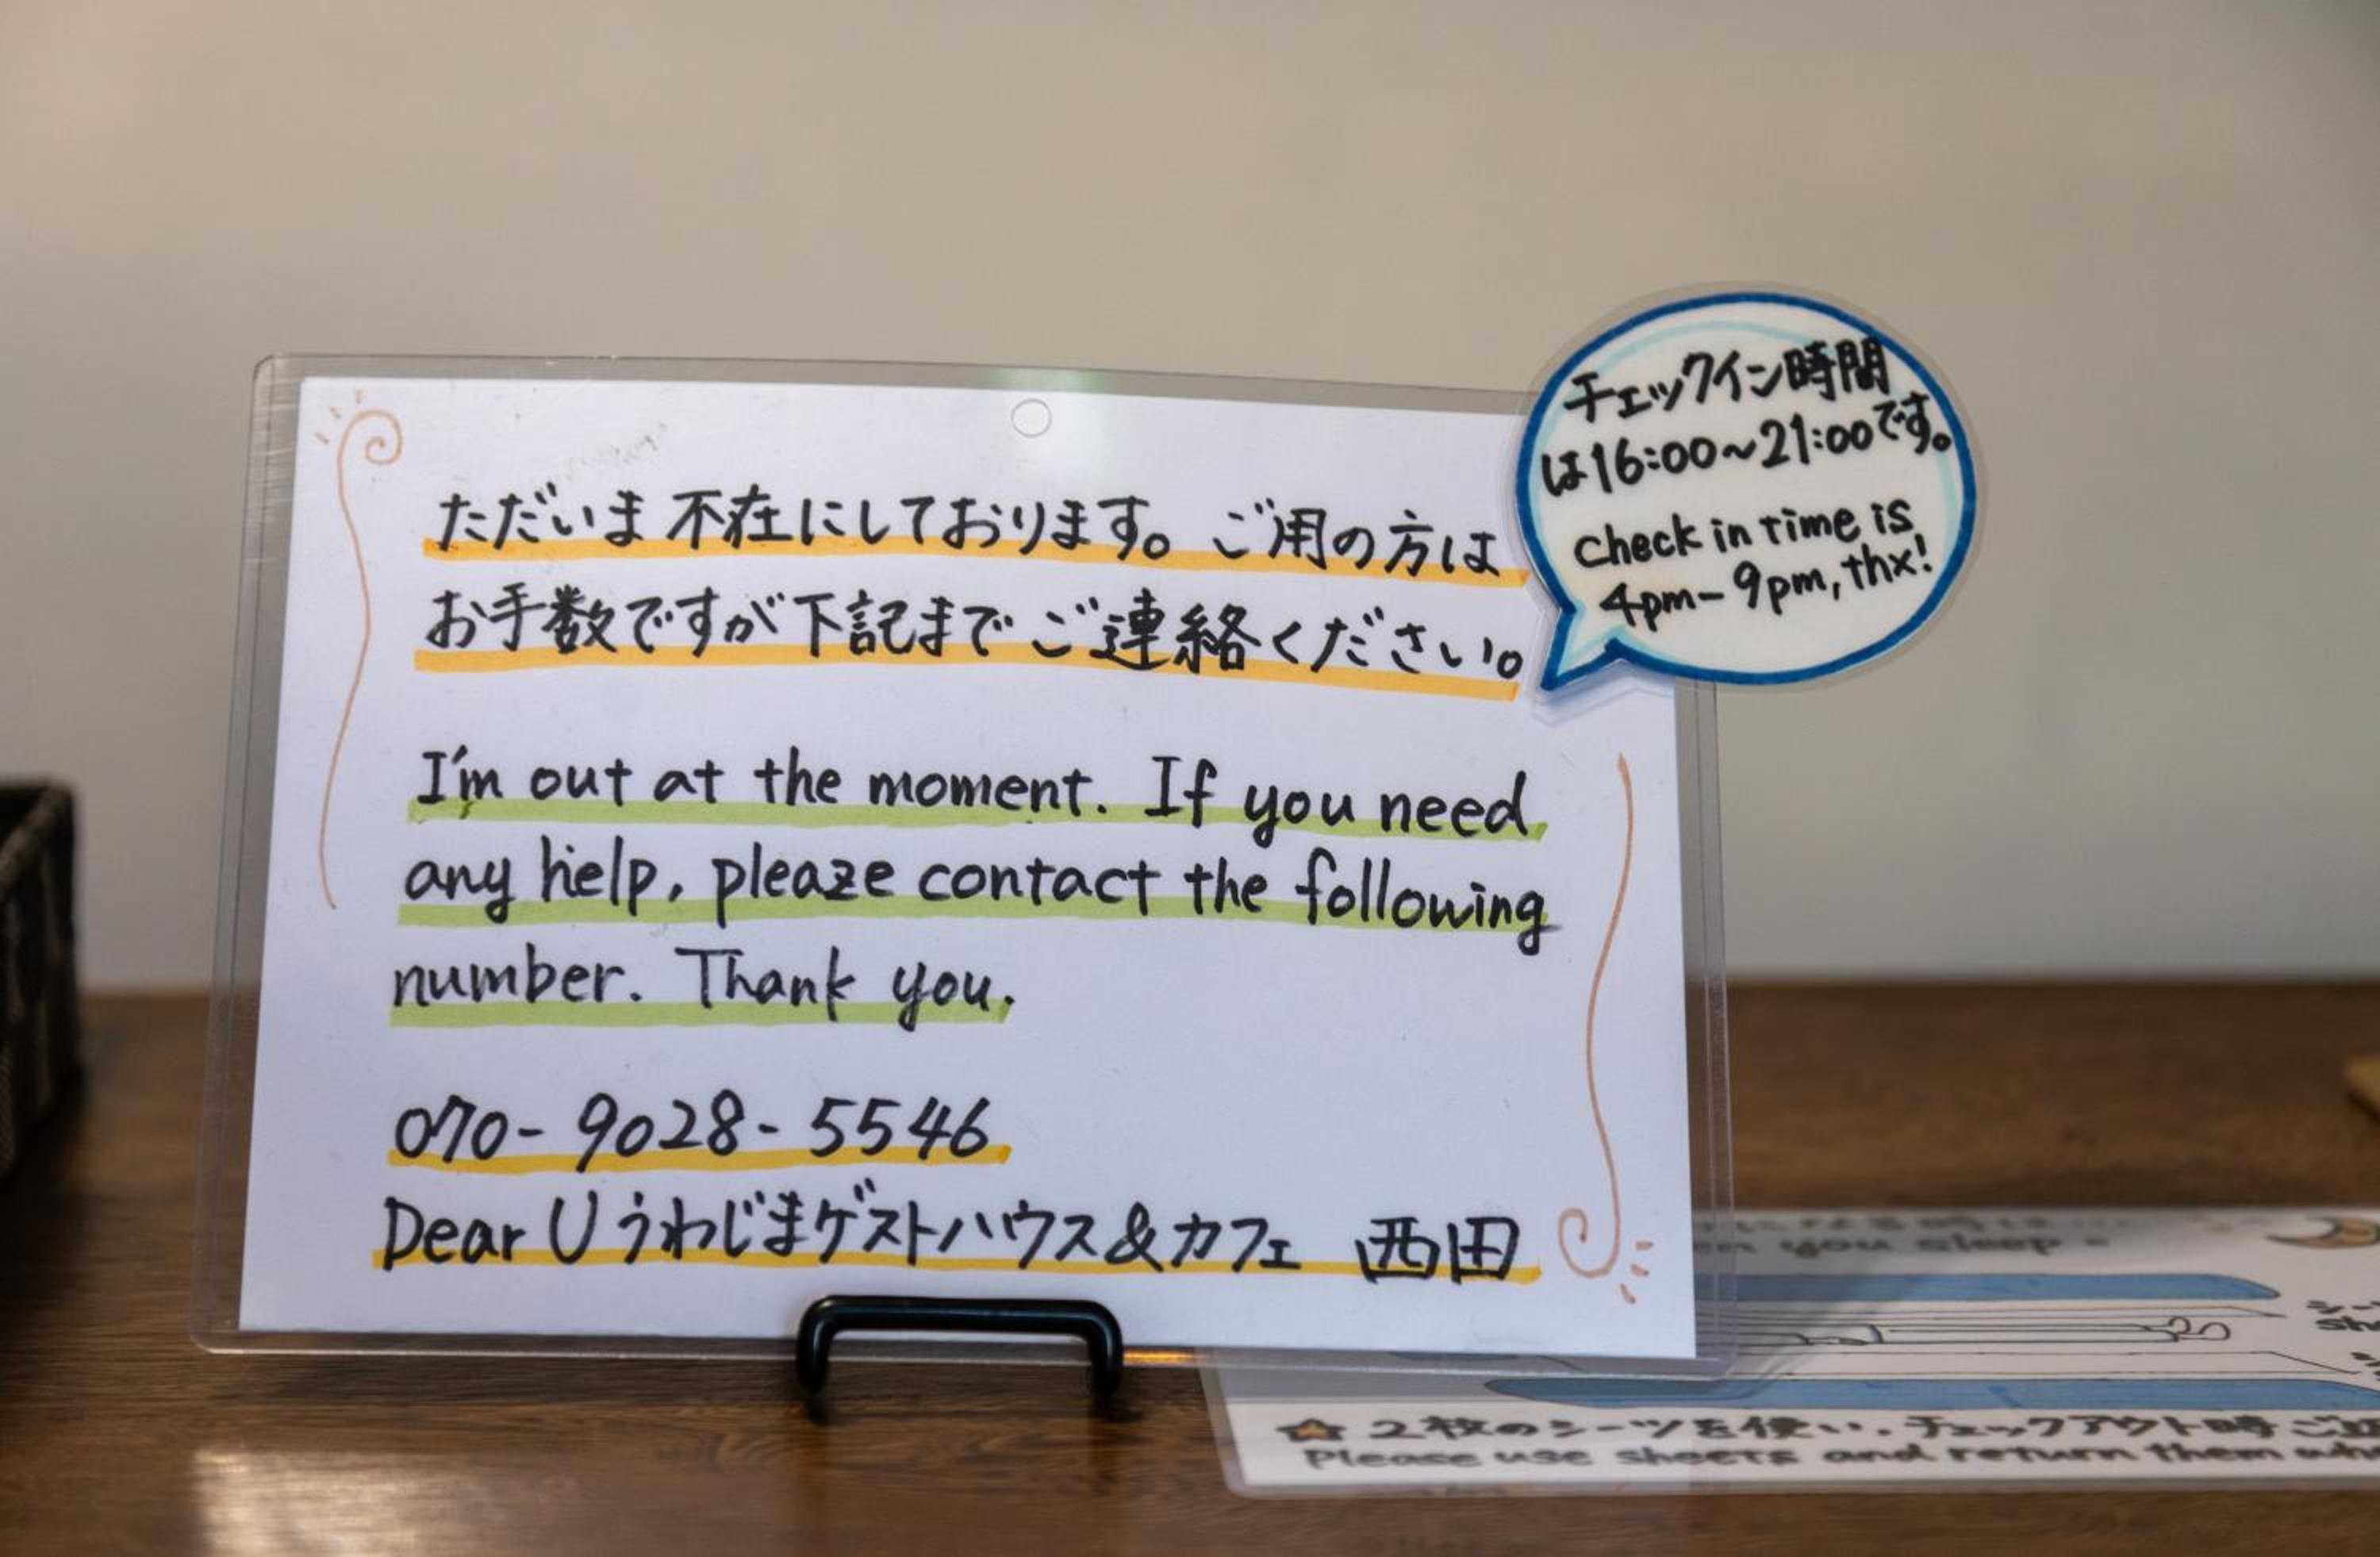 ただいま不在にしております。ご用の方は
お手数ですが下記までご連絡ください。
I'm out at the moment. If you need
any help, pleaze contact the following
number. Thank you.
070-9028-5546
Dear U うわじまゲストハウス&カフェ 西田
チェックイン時間
は16:00~21:00です。
check in time is
4pm-9pm, thx!
you sleep
☆2枚のシーツを使い、チェックアウト時ご
Please use sheets and return them